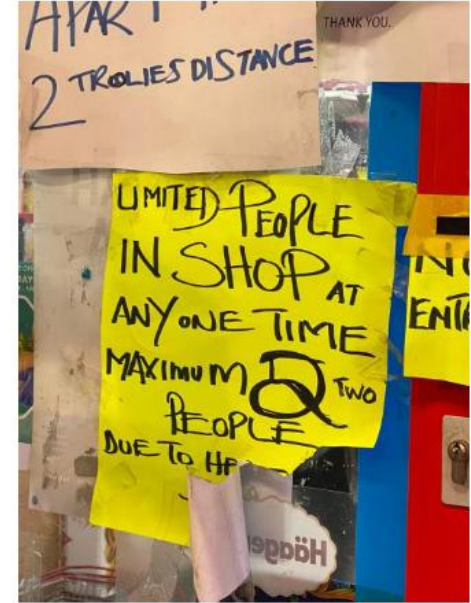 APART
2 TROLIES DISTANCE
THANK YOU.
LIMITED PEOPLE
IN SHOP AT
ANY ONE TIME
MAXIMUM 2 TWO
PEOPLE
DUE TO HE
NO
ENT
Häagen